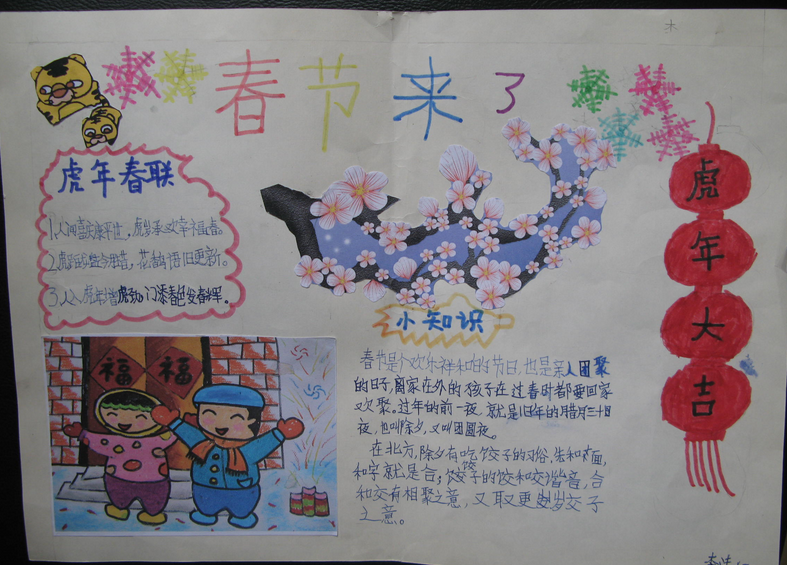 春节来了
虎年春联
1.人间喜庆康平世,虎岁承欢幸福春。
2.虎踞雄盘今胜昔,花香鸟语旧更新。
3.人入虎年增虎劲,门添春色发春辉。
福 福
小知识
春节是个欢乐祥和的节日,也是亲人团聚
的日子,离家在外的孩子在过春时都要回家
欢聚。过年的前一夜,就是旧年的腊月三十日
夜,也叫除夕,又叫团圆夜。
在北方,除夕有吃饺子的习俗,先和面,
和字就是合;饺子的饺和交谐音,合
和交有相聚之意,又取更岁交子
之意。
虎年大吉